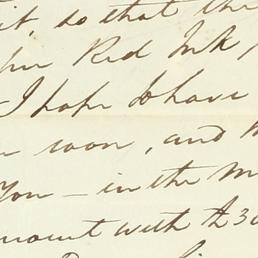 it, so that the
Red Ink
I hope to have
soon, and
You – in the m
mount with £30